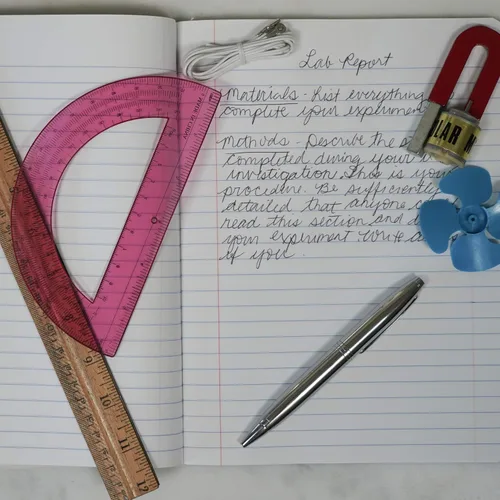 Lab Report
Materials - List everything
complete your experiment
Methods - Describe the
completed during your
investigation. This is your
procedure. Be sufficiently
detailed that anyone
read this section and
your experiment. Write
if you
LAR
9
10
11
12